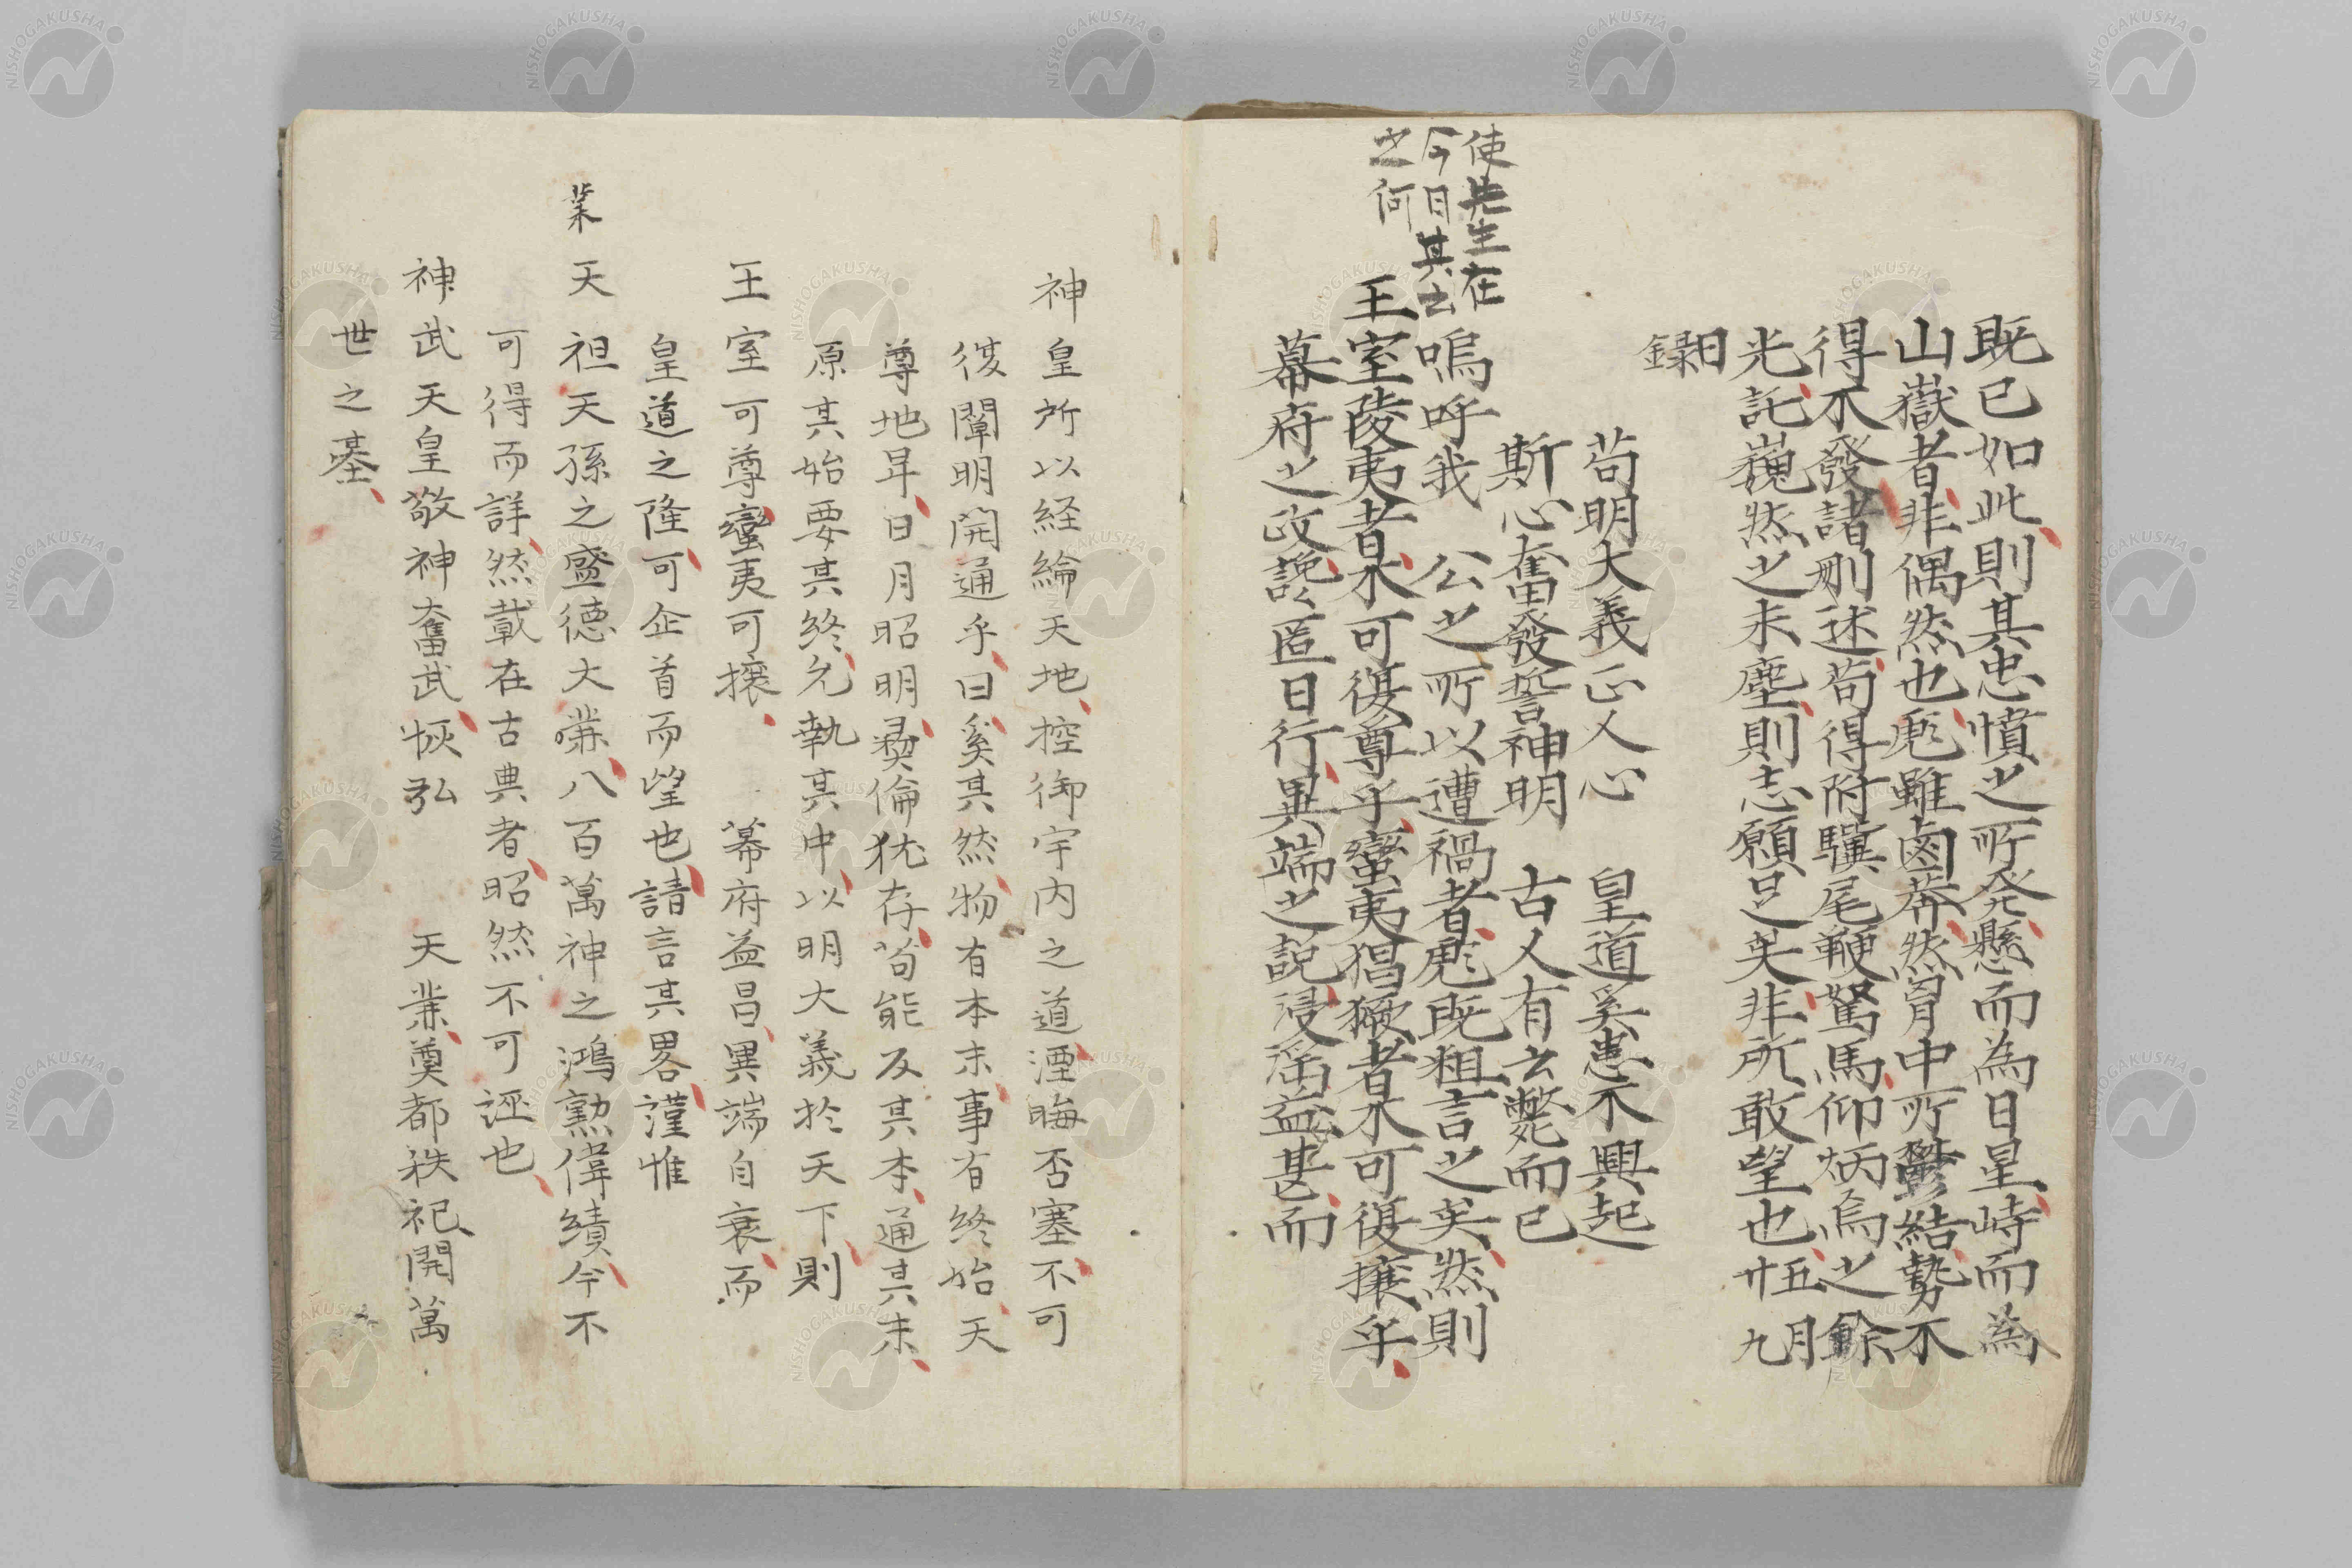 既已如此則其忠憤之所発懸而為日星峙而為
山嶽者非偶然也彪雖鹵莽然胷中所鬱結勢不
得不發諸刪述苟得附驥尾鞭駑馬仰炳烏之餘
光託巍然之末塵則志願足矣非所敢望也廿五九月
日録
苟明大義正人心　皇道奚患不興起
斯心奮發誓神明　古人有云斃而已
使先生在
今日其云
之何
嗚呼我　公之所以遭禍者彪既粗言之矣然則
王室陵夷者不可復尊乎蠻夷猖獗者不可復攘乎
幕府之政讒慝日行異端之説浸滛益甚而
神皇所以経綸天地控御宇内之道湮晦否塞不可
復闡明開通乎曰奚其然物有本末事有終始天
尊地卑日月昭明彛倫犹存苟能反其本通其末
原其始要其終允執其中以明大義於天下則
王室可尊蠻夷可攘　幕府益昌異端自衰而
皇道之隆可企首而望也請言其畧謹惟
業
天祖天孫之盛徳大業八百萬神之鴻勲偉績今不
可得而詳然載在古典者昭然不可誣也
神武天皇敬神奮武恢弘　天業奠都秩祀開萬
世之基
NISHOGAKUSHA